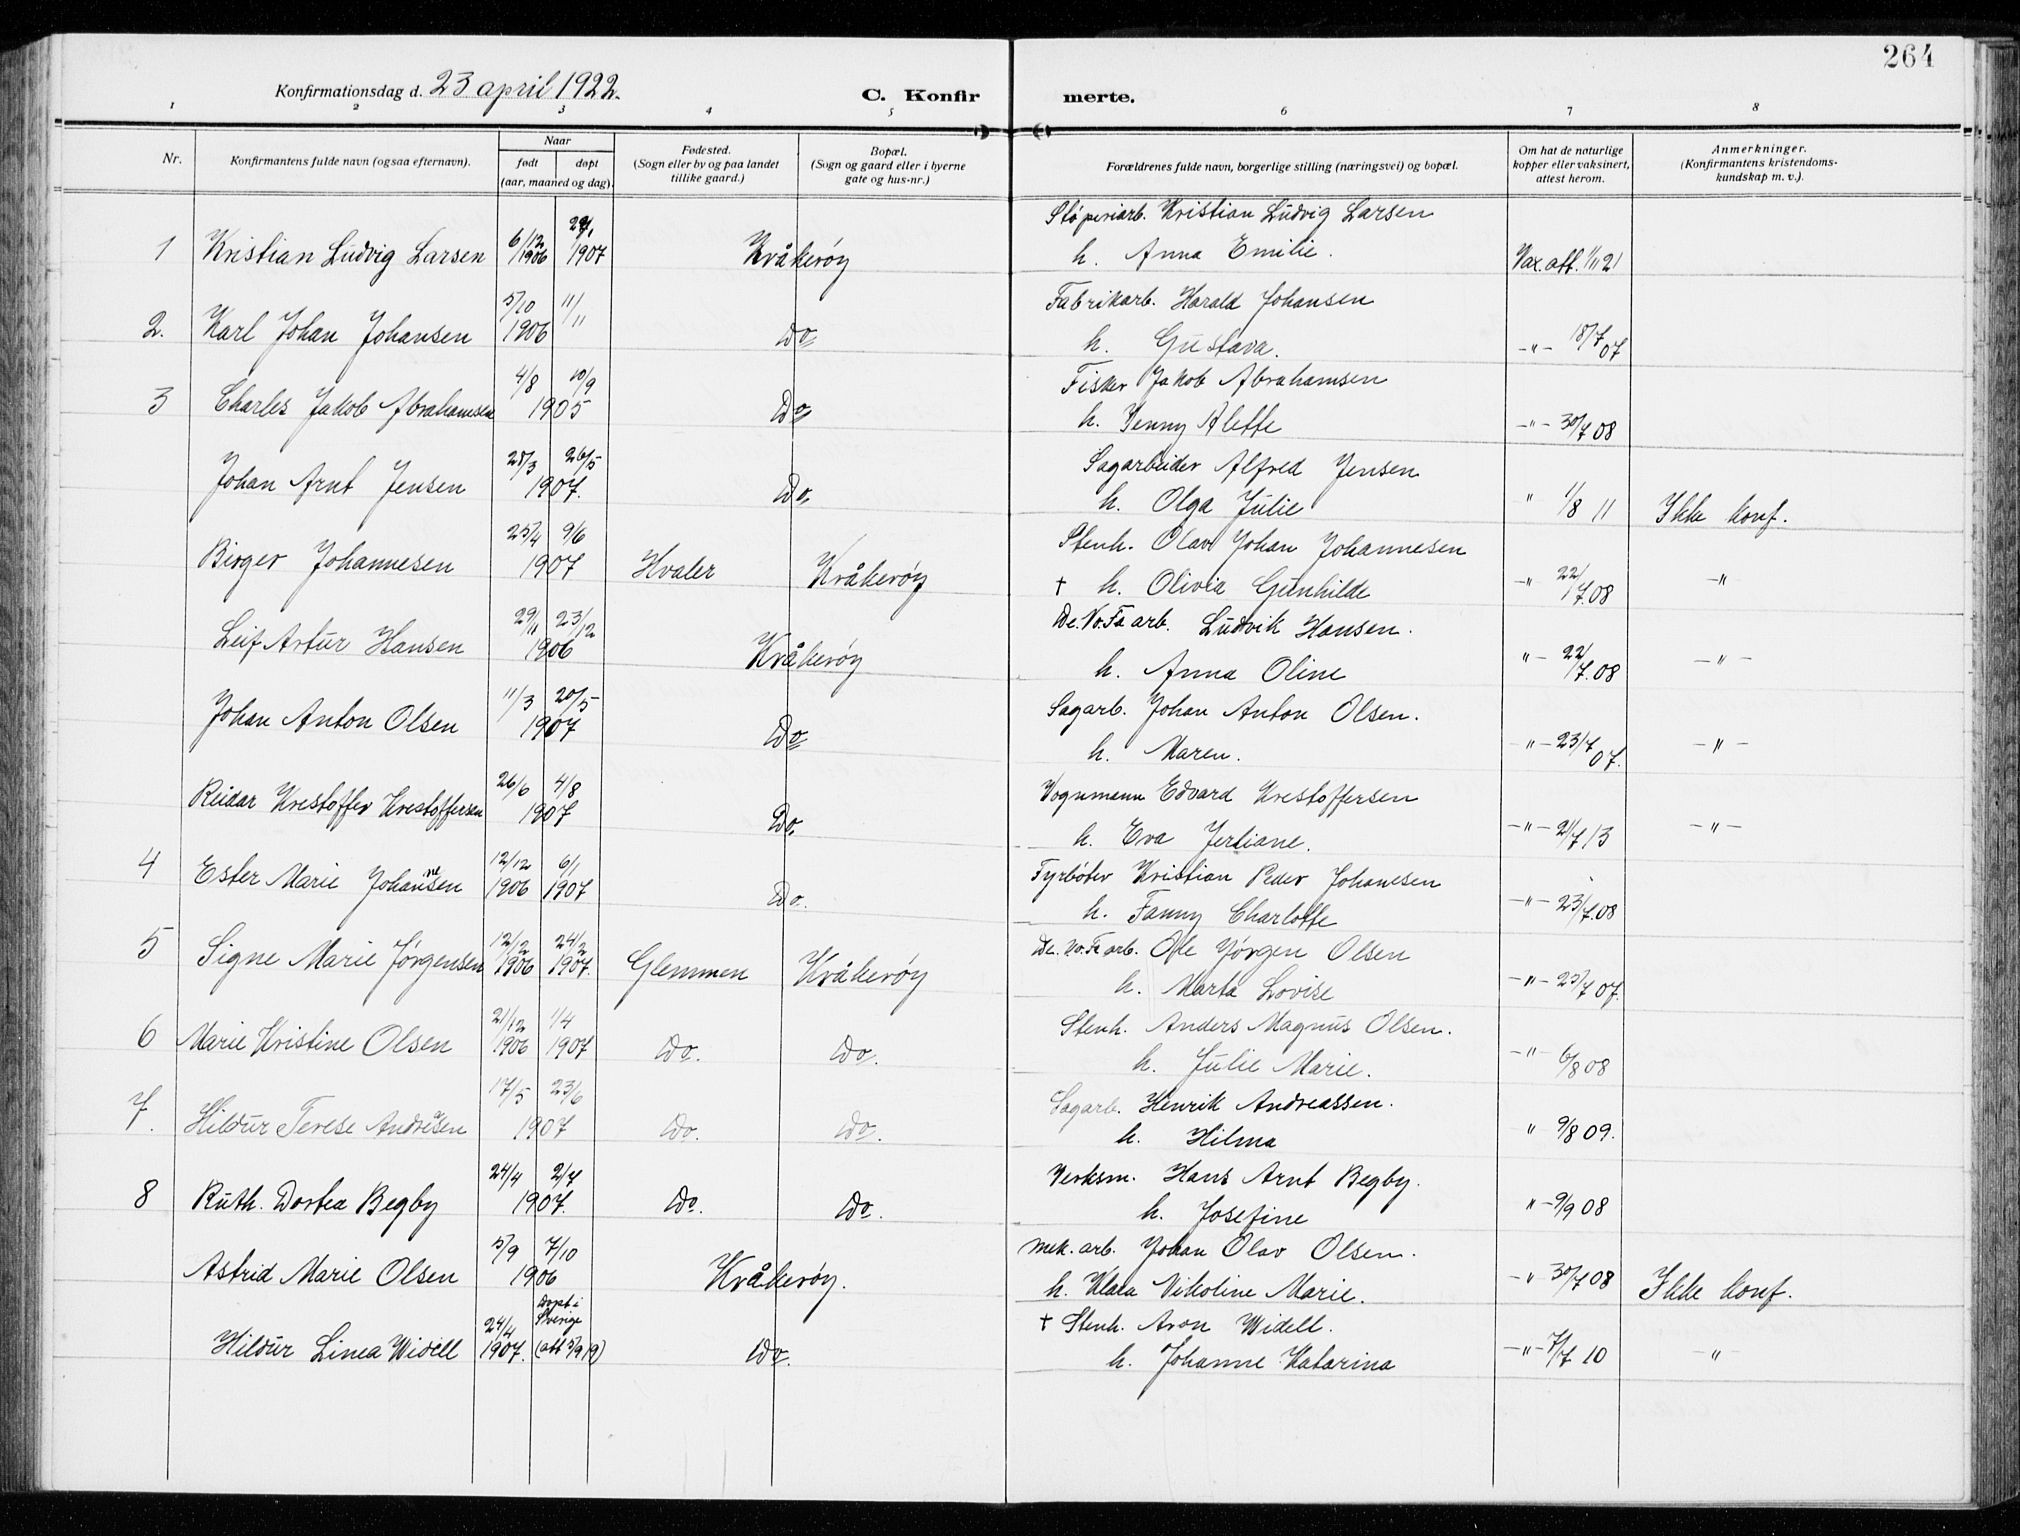 264
Konfirmationsdag d. 23 april 1922.
C. Konfirmerte.
1 2 3 4 5 6 7 8
Nr. Konfirmantens fulde navn (ogsaa efternavn). Naar født døpt (aar, maaned og dag). Fødested. (Sogn eller by og paa landet tillike gaard.) Bopæl. (Sogn og gaard eller i byerne gate og hus-nr.) Forældrenes fulde navn, borgerlige stilling (næringsvei) og bopæl. Om hat de naturlige kopper eller vaksinert, attest herom. Anmerkninger. (Konfirmantens kristendomskundskap m. v.).
1 Kristian Ludvig Larsen 6/12 1906 1907 Kråkerøy Støperiarb. Kristian Ludvig Larsen
h. Anna Emilie. Vax. att. 1/11 21
2. Karl Johan Johansen 5/10 1906 11/11 Do Fabrikarb. Harald Johansen
h. Gustava. -"- 18/7 07
3 Charles Jakob Abrahamsen 4/8 10/9 1905 Do Fisker Jakob Abrahamsen
h. Jenny Alette -"- 30/7 08
Johan Arnt Jensen 28/3 26/5 1907. Do. Sagarbeider Alfred Jensen
h. Olga Julie " 1/8 11 Ikke konf.
Birger Johannesen 25/4 9/6 1907 Hvaler Kråkerøy Stenh. Olav Johan Johannesen
† h. Olivia Gunhilde -" 22/7.08 -"
Leif Artur Hansen 29/11 23/12 1906 Kråkerøy De.No.Fa arb. Ludvik Hansen.
h. Anna Oline "- 22/7.08 -"-
Johan Anton Olsen 11/3 20/5 1907 Do Sagarb. Johan Anton Olsen.
h. Maren. "- 23/7 07. -"-
Reidar Krestoffer Krestoffersen 26/6 4/8 1907 Do. Vognmann Edvard Krestoffersen
h. Eva Jertiane. -"- 21/7 13 -"-
4 Ester Marie Johannesen 12/12 1906 6/1 1907 Do. Fyrbøter Kristian Peder Johanesen
h. Fanny Charlotte -"- 23/7.08
5 Signe Marie Jørgensen 12/12 1906 24/2 1907. Glemmen Kråkerøy De.No.Fa arb. Ole Jørgen Olsen
h. Marta Lovise -"- 23/7 07.
6 Marie Kristine Olsen 21/12 1906 1/4 1907 Do. Do. Stenh. Anders Magnus Olsen.
h. Julie Marie. -"- 6/8 08
7. Hildur Terese Andreasen 17/5 23/6 1907 Do. Do. Sagarb. Henrik Andreassen.
h. Hilma " 9/8 09.
8 Ruth. Dortea Begby 24/4 2/7 1907. Do. Do. Verksm. Hans Arnt Begby.
h. Josefine "- 9/9 08
Astrid Marie Olsen 5/9 7/10 1906 Kråkerøy. Mek. arb. Johan Olav Olsen.
h. Klara Nikoline Marie. -" 30/7 08 Ikke konf.
Hildur Linea Widell 24/4 1907. Døpt i Sverige (att 5/9 19) Do. † Stenh. Aron Widell.
h. Johanne Katarina -"- 7/7 10 -"-